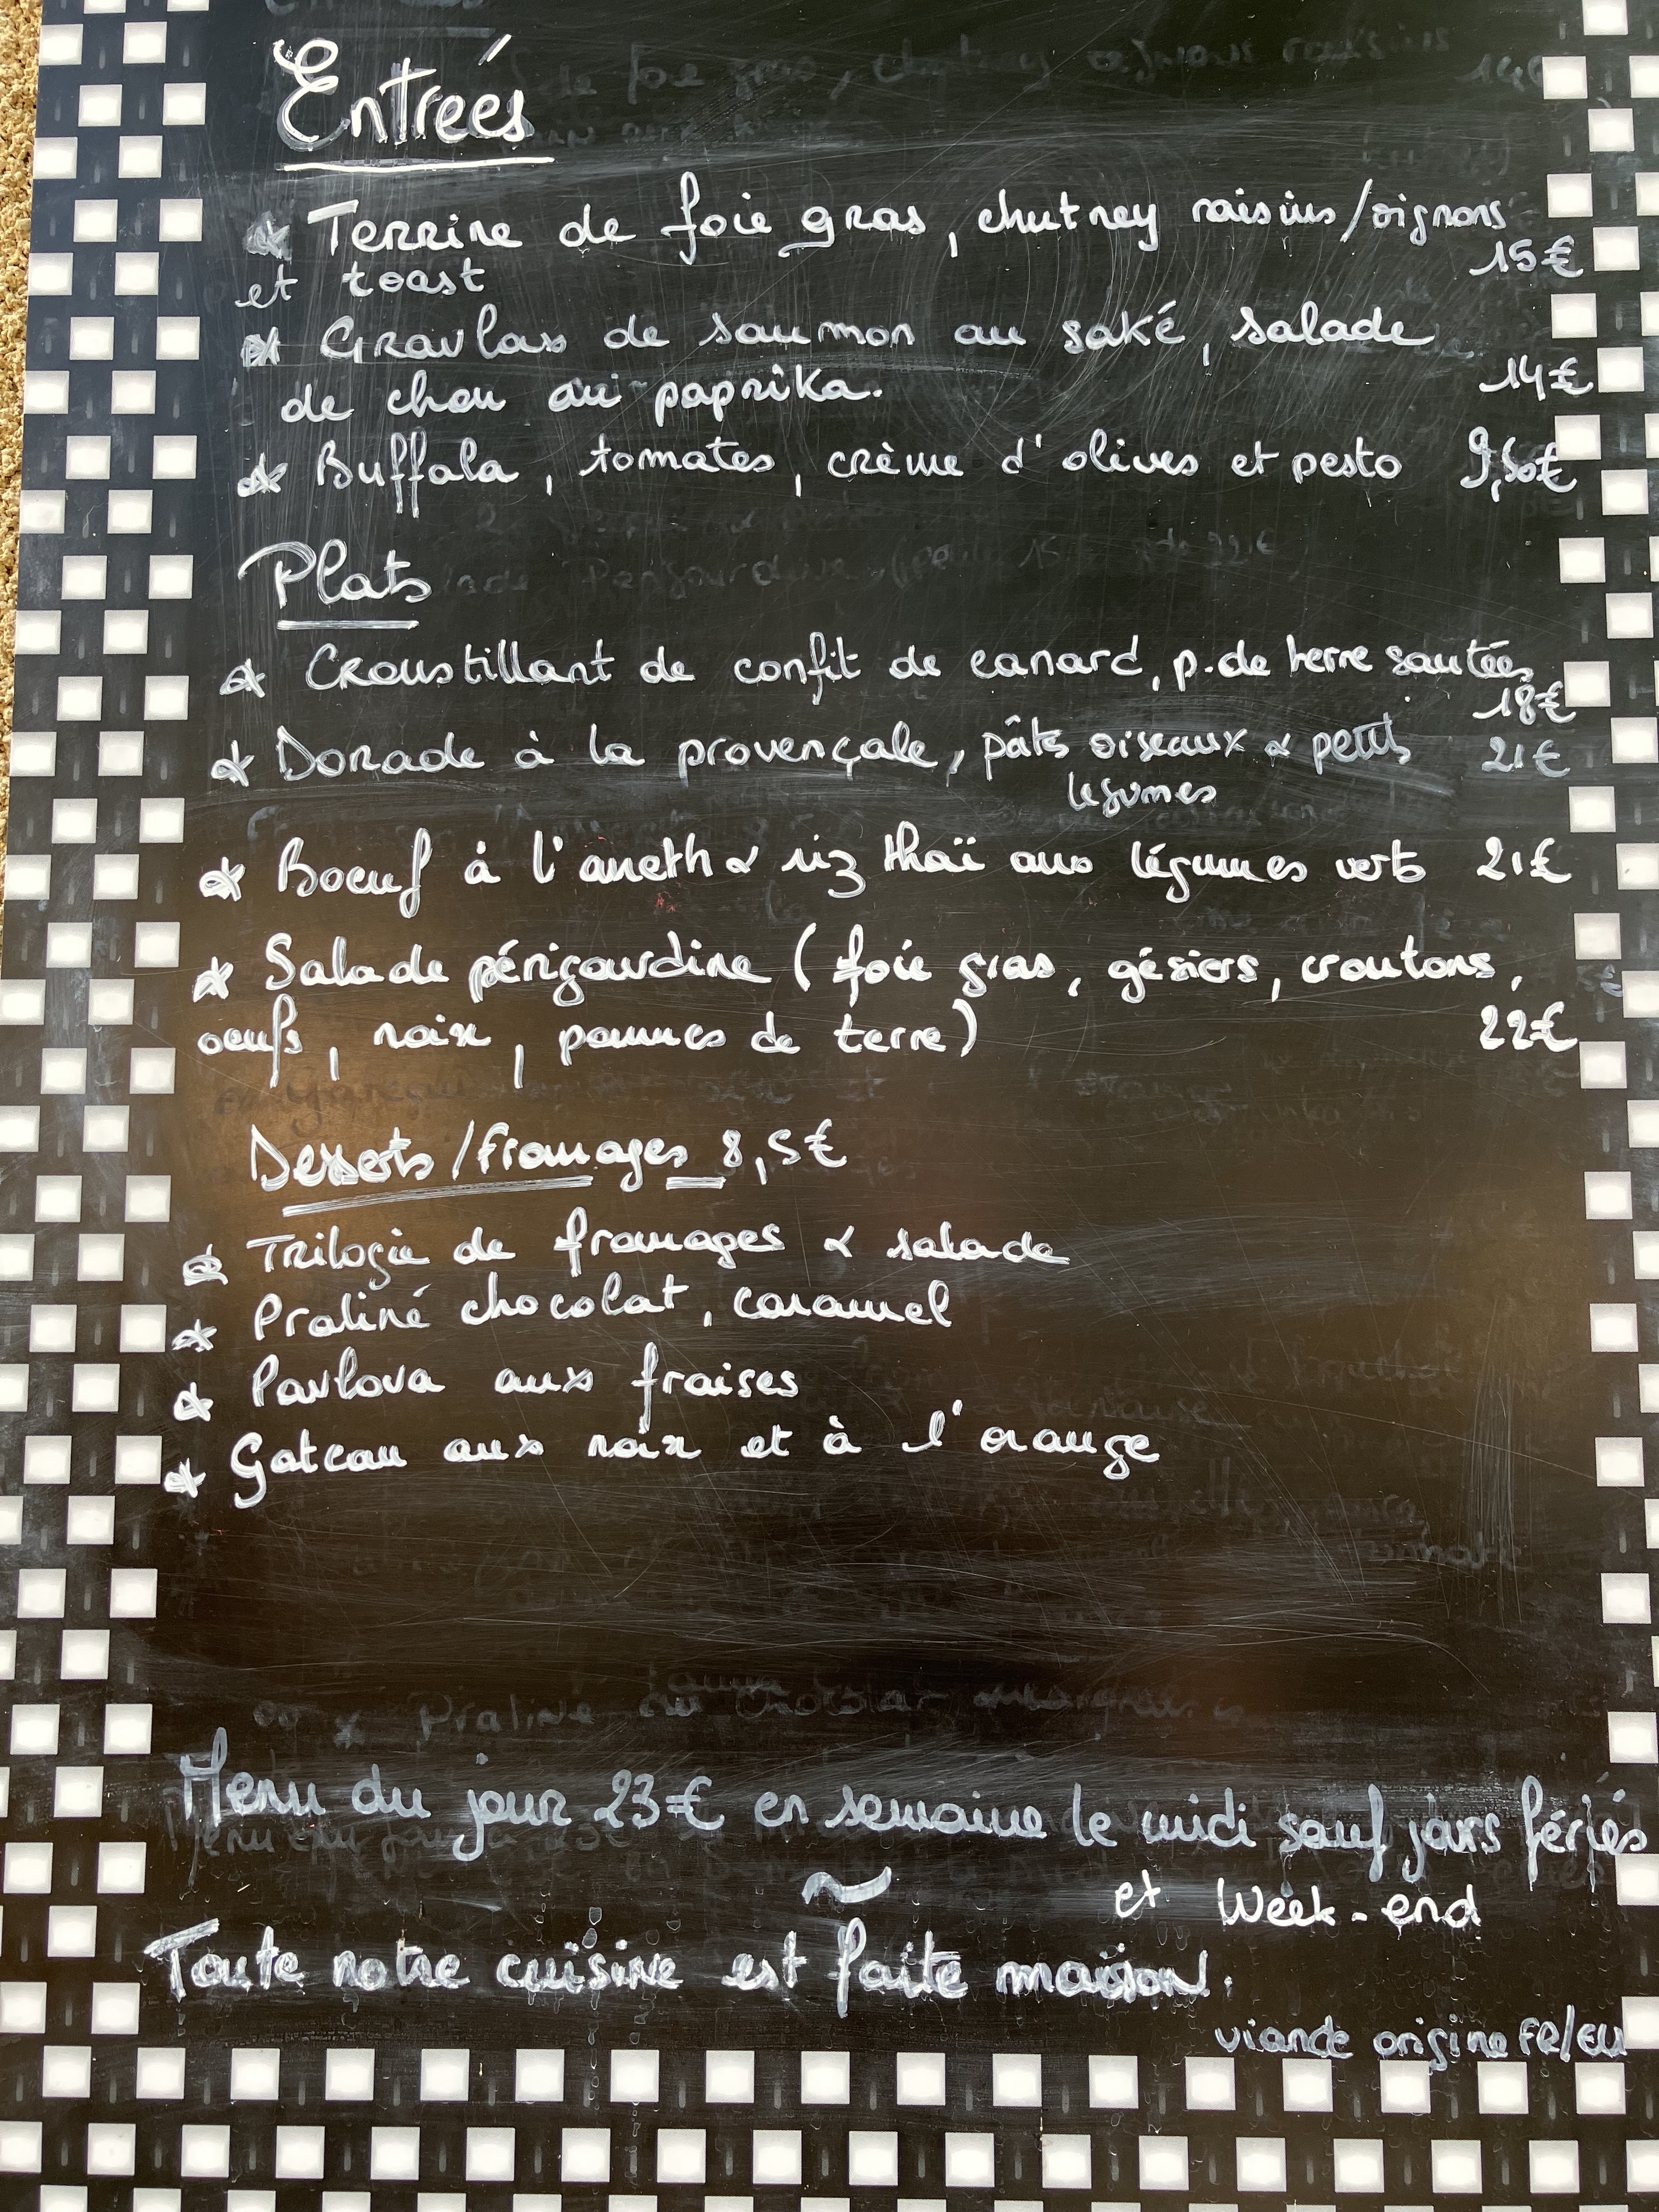 Entrées
* Terrine de foie gras, chutney raisins/oignons
et toast 15€
* Gravlax de saumon au saké, salade
de chou au paprika. 14€
* Buffala, tomates, crème d'olives et pesto 9,50€
Plats
* Croustillant de confit de canard, p. de terre sautées
18€
* Dorade à la provençale, pâtes oiseaux & petits 21€
légumes
* Boeuf à l'aneth & riz thaï aux légumes verts 21€
* Salade périgourdine (foie gras, gésiers, croutons,
oeufs, noix, pommes de terre) 22€
Desserts/fromages 8,5€
* Trilogie de fromages & salade
* Praliné chocolat, caramel
* Pavlova aux fraises
* Gateau aux noix et à l'orange
Menu du jour 23€ en semaine le midi sauf jours fériés
~ et Week-end
Toute notre cuisine est faite maison.
viande origine FR/EU